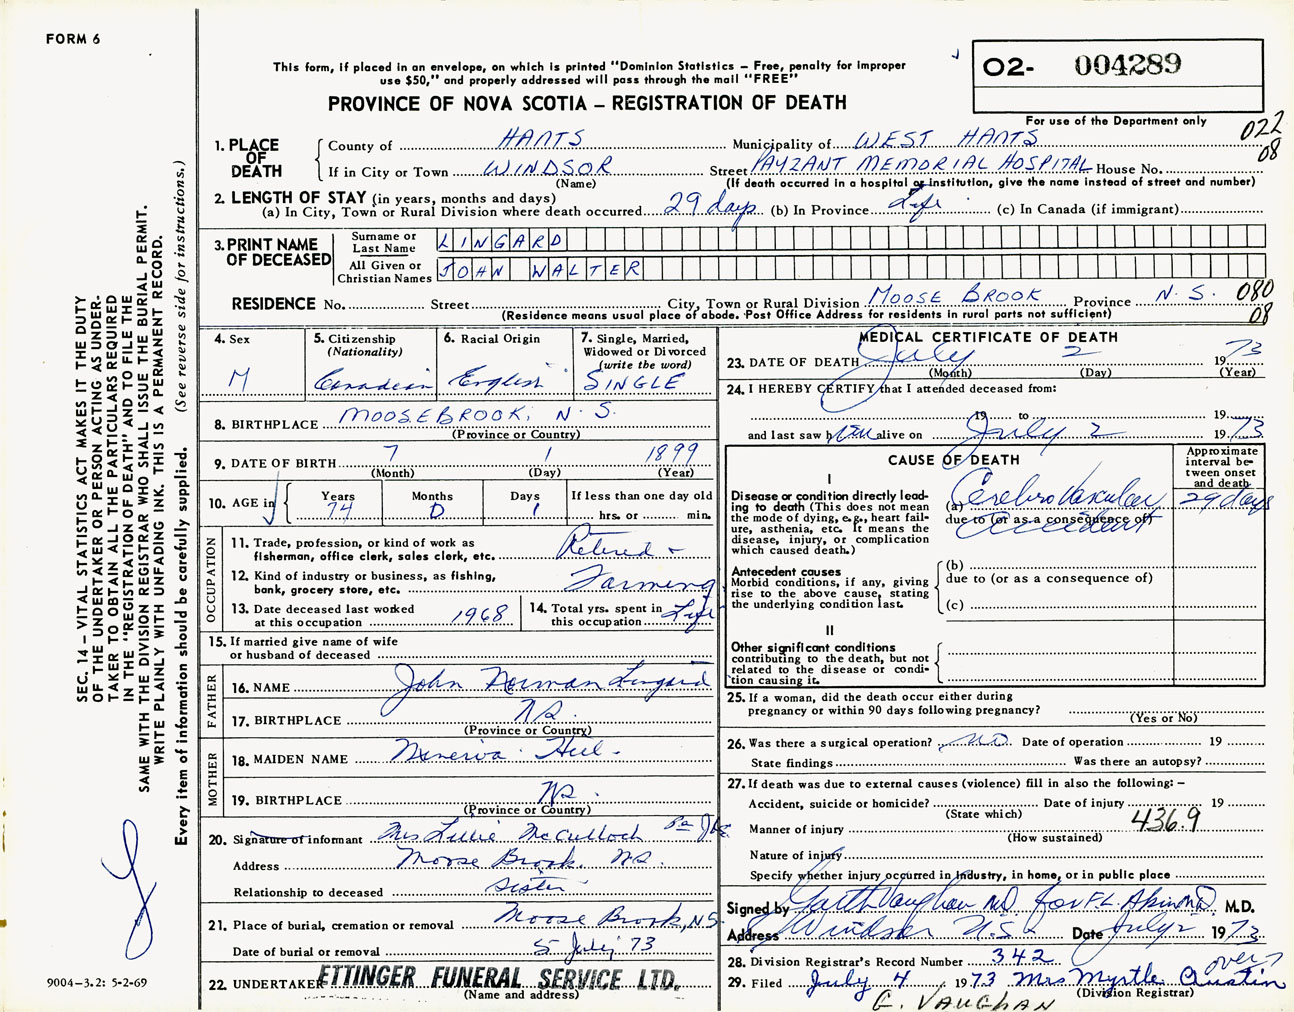 FORM 6
This form, if placed in an envelope, on which is printed "Dominion Statistics – Free, penalty for improper
use $50," and properly addressed will pass through the mail "FREE"
PROVINCE OF NOVA SCOTIA – REGISTRATION OF DEATH
O2- 004289
For use of the Department only
022
08
1. PLACE OF DEATH
County of HANTS Municipality of WEST HANTS
If in City or Town WINDSOR Street PAYZANT MEMORIAL HOSPITAL House No.
(Name) (If death occurred in a hospital or institution, give the name instead of street and number)
2. LENGTH OF STAY (in years, months and days)
(a) In City, Town or Rural Division where death occurred 29 days (b) In Province Life (c) In Canada (if immigrant)
3. PRINT NAME OF DECEASED
Surname or Last Name LINGARD
All Given or Christian Names JOHN WALTER
RESIDENCE No. Street City, Town or Rural Division MOOSE BROOK Province N.S. 080
(Residence means usual place of abode. Post Office Address for residents in rural parts not sufficient) 08
4. Sex M
5. Citizenship (Nationality) Canadian
6. Racial Origin English
7. Single, Married, Widowed or Divorced (write the word) SINGLE
8. BIRTHPLACE MOOSEBROOK, N.S.
(Province or Country)
9. DATE OF BIRTH 7 1 1899
(Month) (Day) (Year)
10. AGE in Years 74 Months 0 Days 1 If less than one day old hrs. or min.
OCCUPATION
11. Trade, profession, or kind of work as
fisherman, office clerk, sales clerk, etc. Retired –
12. Kind of industry or business, as fishing,
bank, grocery store, etc. Farming
13. Date deceased last worked
at this occupation 1968
14. Total yrs. spent in
this occupation Life
15. If married give name of wife
or husband of deceased
FATHER
16. NAME John Norman Lingard
17. BIRTHPLACE NS.
(Province or Country)
MOTHER
18. MAIDEN NAME Minerva
19. BIRTHPLACE NS.
(Province or Country)
20. Signature of informant Mrs Lillie McCulloch
Address Moose Brook. NS.
Relationship to deceased Sister
21. Place of burial, cremation or removal Moose Brook, N.S.
Date of burial or removal 5 July 73
22. UNDERTAKER ETTINGER FUNERAL SERVICE LTD.
(Name and address)
MEDICAL CERTIFICATE OF DEATH
23. DATE OF DEATH July 2 1973
(Month) (Day) (Year)
24. I HEREBY CERTIFY that I attended deceased from:
19 to 19
and last saw him alive on July 2 1973
CAUSE OF DEATH
Approximate interval between onset and death
I
Disease or condition directly lead-
ing to death (This does not mean
the mode of dying, e.g., heart fail-
ure, asthenia, etc. It means the
disease, injury, or complication
which caused death.)
(a) Cerebro Vascular Accident 29 days
due to (or as a consequence of)
Antecedent causes
Morbid conditions, if any, giving
rise to the above cause, stating
the underlying condition last.
(b)
due to (or as a consequence of)
(c)
II
Other significant conditions
contributing to the death, but not
related to the disease or condi-
tion causing it.
25. If a woman, did the death occur either during
pregnancy or within 90 days following pregnancy?
(Yes or No)
26. Was there a surgical operation? no Date of operation 19
State findings Was there an autopsy?
27. If death was due to external causes (violence) fill in also the following: –
Accident, suicide or homicide? Date of injury 19
(State which)
Manner of injury 436.9
(How sustained)
Nature of injury
Specify whether injury occurred in industry, in home, or in public place
Signed by Garth Vaughan MD for F.L. Akin MD. M.D.
Address Windsor N.S. Date July 2 1973
28. Division Registrar's Record Number 342
over
29. Filed July 4 1973 Mrs Myrtle Austin
(Division Registrar)
G. VAUGHAN
SEC. 14 – VITAL STATISTICS ACT MAKES IT THE DUTY
OF THE UNDERTAKER OR PERSON ACTING AS UNDER-
TAKER TO OBTAIN ALL THE PARTICULARS REQUIRED
IN THE "REGISTRATION OF DEATH" AND TO FILE THE
SAME WITH THE DIVISION REGISTRAR WHO SHALL ISSUE THE BURIAL PERMIT.
WRITE PLAINLY WITH UNFADING INK. THIS IS A PERMANENT RECORD.
Every item of information should be carefully supplied. (See reverse side for instructions.)
9004-3.2: 5-2-69